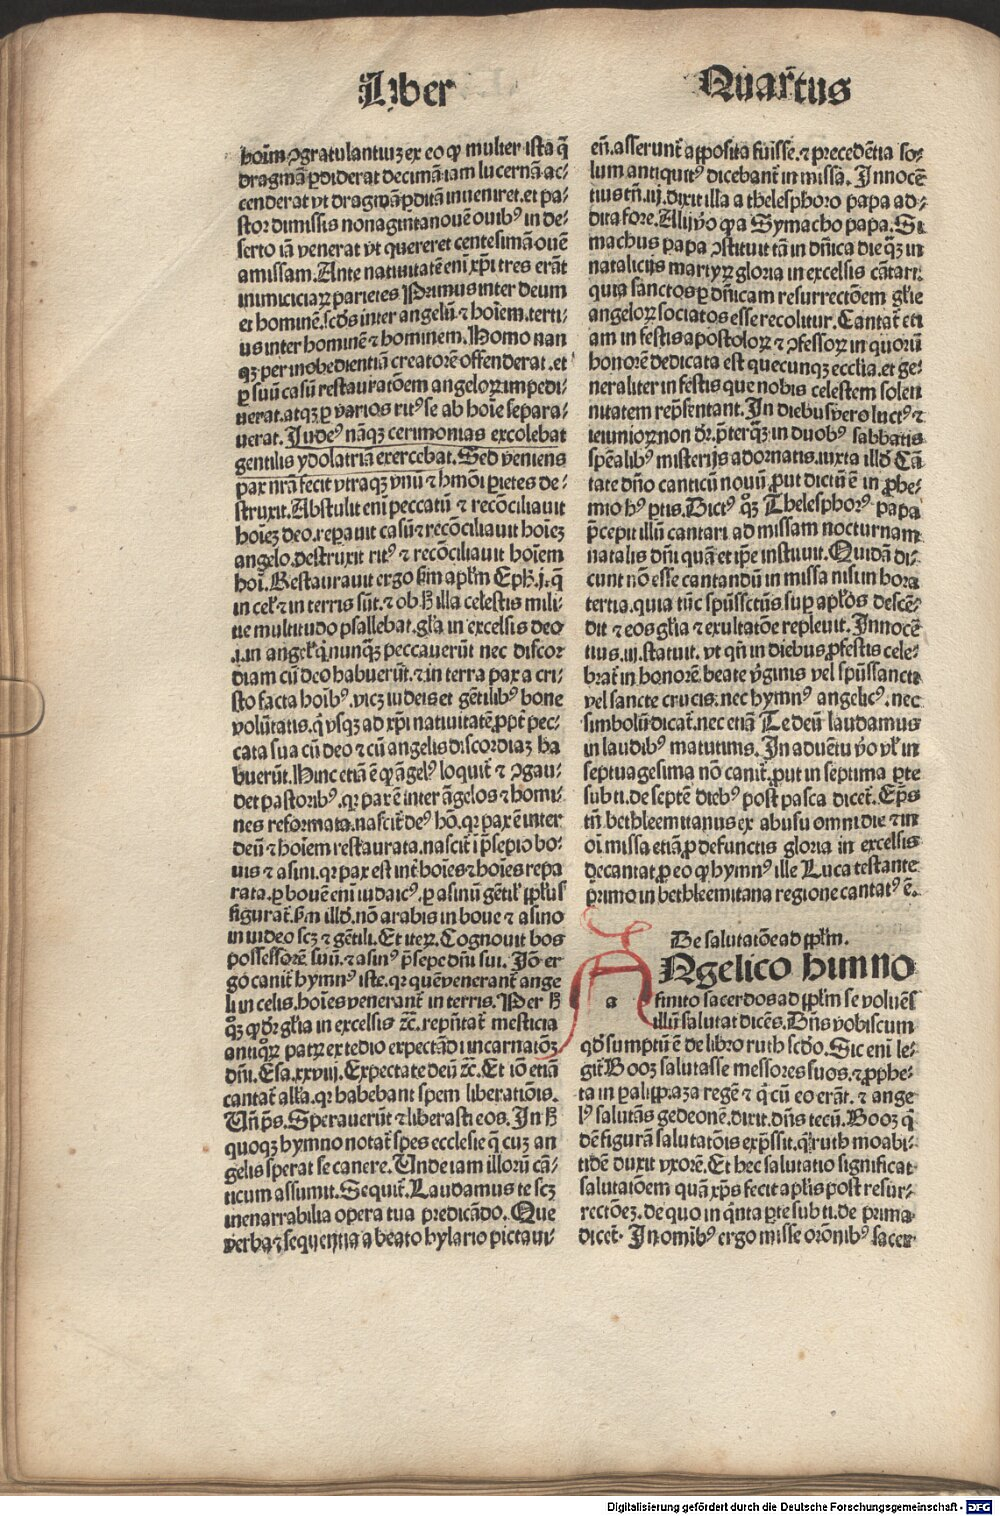 Liber Quartus
hoim̄ ꝯgratulantiuꝫ ex eo ꝙ mulier ista q̄
dragmā ꝑdiderat decimā iam lucernā ac⸗
cenderat vt dragmā ꝑditā inueniret. et pa⸗
stor dimissis nonagintanouē ouibꝰ in de⸗
serto iā venerat vt quereret centesimā ouē
amissam. Ante natiuitatē eni xp̄i tres erāt
inimiciciaꝝ parietes Primus inter deum
et hominē. scd̄s inter angelū ⁊ hoīem. terti⸗
us inter hominē ⁊ hominem. Homo nan
qꝫ per inobedientiā creatorē offenderat. et
ꝑ suū casū restauratōem angeloꝝ impedi⸗
uerat. atqꝫ ꝑ varios ritꝰ se ab hoīe separa⸗
uerat. Iudeꝰ nāqꝫ cerimonias excolebat
gentilis ydolatriā exercebat. Sed veniens
pax nr̄a fecit vtraqꝫ vnū ⁊ hmōi ꝑietes de⸗
struxit. Abstulit eni peccatū ⁊ recōciliauit
hoīeꝫ deo. reparauit casū ⁊ recōciliauit hoīeꝫ
angelo. destruxit ritꝰ ⁊ recōciliauit hoīem
hoī. Restaurauit ergo ẜm apl̄m Eph̄. j. q̄
in cel̄ ⁊ in terris sūt. ⁊ ob ħ illa celestis mili⸗
tie multitudo psallebat. gl̄ia in excelsis deo
.i. in angel̄ q̄ nunqꝫ peccauerūt nec discor
diam cū deo habuerūt. ⁊ in terra pax a cri⸗
sto facta hoībꝰ. vicꝫ iudeis et gētilibꝰ bone
volūtatis. q̄ vsqꝫ ad xp̄i natiuitatē. ꝓpt̄ pec⸗
cata sua cū deo ⁊ cū angelis discordiaꝫ ha
buerūt. Hinc etiā ē ꝙ āgelꝰ loquit̄ ⁊ ꝯgau⸗
det pastoribꝰ. qꝛ pax ē inter āgelos ⁊ homi⸗
nes reformata. nascit̄ deꝰ hō. qꝛ pax ē inter
deū ⁊ hoīem restaurata. nascit̄ i p̄sepio bo⸗
uis ⁊ asini. qꝛ pax est int̄ hoīes ⁊ hoīes repa
rata. ꝑ bouē eni iudaicꝰ. ꝑ asinū gētil̄ ppl̄us
figurat̄. ẜm illd̄. nō arabis in boue ⁊ asino
in iudeo scꝫ ⁊ gētili. Et iteꝝ. Cognouit bos
possessorē suū. ⁊ asinꝰ p̄sepe dn̄i sui. Iō er⸗
go canit̄ hymnꝰ iste. qꝛ quē venerant̄ ange
li in celis. hoīes venerant̄ in terris. Per ħ
qꝫ̄ ꝙ dr̄ gl̄ia in excelsis ⁊c̄. rep̄ntat̄ mesticia
antiquoꝝ patꝝ ex tedio expectādi incarnatōꝫ
dn̄i. Esa. xxviij. Expectate deū ⁊c̄. Et iō etiā
cantat̄ all̄a. qꝛ habebant spem liberatiōis.
Vn̄ p̄s. Sperauerūt ⁊ liberasti eos. In ħ
quoqꝫ hymno notat̄ spes ecclesie q̄ cuꝫ an
gelis sperat se canere. Unde iam illorū cā⸗
ticum assumit. Sequit̄. Laudamus te scꝫ
inenarrabilia opera tua predicādo. Que
verba ⁊ sequentia a beato hylario pictaui⸗
en̄. asserunt̄ apposita fuisse. ⁊ precedētia so⸗
lum antiquitꝰ dicebant̄ in missa. Innocē
tius tn̄. iij. dixit illa a thelesphoro papa ad⸗
dita fore. Alij vo̊ ꝙ a Symacho papa. Si
machus papa ꝯstituit tā in dn̄ica die qꝫ̄ in
natalicijs martyꝝ gloria in excelsis cātari.
quia sanctos ꝑ dn̄icam resurrectōem gl̄ie
angeloꝝ sociatos esse recolitur. Cantat̄ eti
am in festis apostoloꝝ ⁊ ꝯfessoꝝ in quorū
honorē dedicata est quecunqꝫ ecclia. et ge⸗
neraliter in festis que nobis celestem solen
nitatem rep̄sentant. In diebus vero luctꝰ ⁊
ieiunioꝝ non dr̄. p̄terqꝫ̄ in duobꝰ sabbatis
spēalibꝰ misterijs adornatis. iuxta illd̄ Cā
tate dn̄o canticū nouū. put dictū ē in ꝓhe⸗
mio hꝰ ptis. Dictꝰ qꝫ̄ Thelesphorꝰ papa
p̄cepit illū cantari ad missam nocturnam
natalis dn̄i quā et ip̄e instituit. Quidā di⸗
cunt nō esse cantandū in missa nisi in hora
tertia. quia tūc spūssctūs suꝑ apl̄os descē⸗
dit ⁊ eos gl̄ia ⁊ exultatōe repleuit. Innocē
tius. iij. statuit. vt qn̄ in diebus ꝓfestis cele⸗
brat̄ in honorē beate v̄ginis vel spūssancti
vel sancte crucis. nec hymnꝰ angelicꝰ. nec
simbolū dicat̄. nec etiā Te deū laudamus
in laudibꝰ matutinis. In aduētu vo̊ vl̄ in
septuagesima nō canit̄. put in septima ꝑte
sub ti. de septē diebꝰ post pasca dicet̄. Ep̄s
tn̄. bethleemitanus ex abusu omni die ⁊ in
oī missa etiā ꝓ defunctis gloria in excelsis
decantat. ꝓ eo ꝙ hymnꝰ ille Luca testante
primo in bethleemitana regione cantatꝰ ē.
De salutatōe ad ppl̄m.
ANgelico hinno
a finito sacerdos ad ppl̄m se voluēs
illū salutat dicēs. Dn̄s vobiscum
qd̄ sumptū ē de libro ruth scd̄o. Sic eni le⸗
git̄ Booz salutasse messores suos. ⁊ ꝓphe⸗
ta in palipp. aza regē ⁊ q̄ cū eo erāt. ⁊ ange
lꝰ salutās gedeonē. dixit. dn̄s tecū. Booz q̄
dē figurā salutatōis exp̄ssit. q̄ ruth moabi⸗
tidē duxit vxorē. Et hec salutatio significat
salutatōem quā xp̄s fecit aplis post resur⸗
rectōeꝫ. de quo in q̄nta ꝑte sub ti. de prima
dicet̄. In omībꝰ ergo misse orōnibꝰ sacer⸗
Digitalisierung gefördert durch die Deutsche Forschungsgemeinschaft - DFG